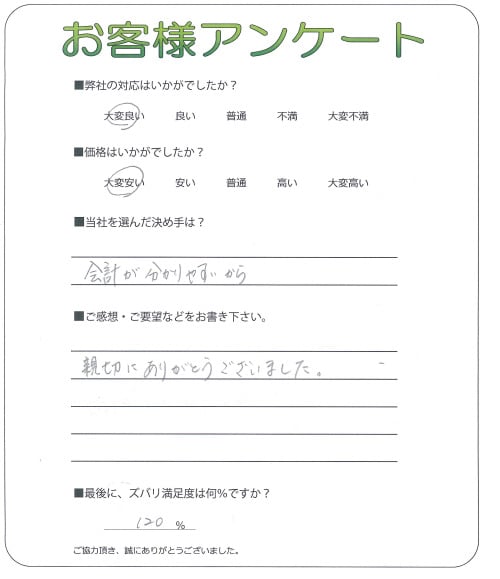 お客様アンケート
■弊社の対応はいかがでしたか？
大変良い 良い 普通 不満 大変不満
■価格はいかがでしたか？
大変安い 安い 普通 高い 大変高い
■当社を選んだ決め手は？
会計が分かりやすいから
■ご感想・ご要望などをお書き下さい。
親切にありがとうございました。
■最後に、ズバリ満足度は何%ですか？
120 %
ご協力頂き、誠にありがとうございました。